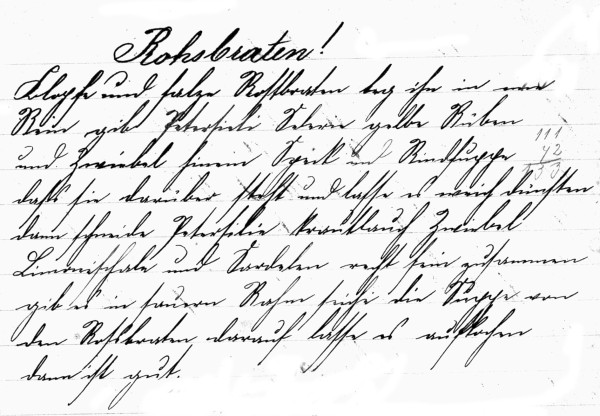 Rohsbraten!
Klopfe und salze Rostbraten leg ihn in eine
Rein gib Petersieli Selerie gelbe Rüben
und Zwiebel hinein Speck und Rindsuppe
daß sie darüber steht und lasse es weich dünsten
dann schneide Petersilie Krautlauch Zwiebel
Limonischale und Sardelen recht fein zusammen
gib es in sauern Rahm seihe die Suppe von
den Rostbraten darauf lasse es aufkochen
dann ist gut.
111
42
153